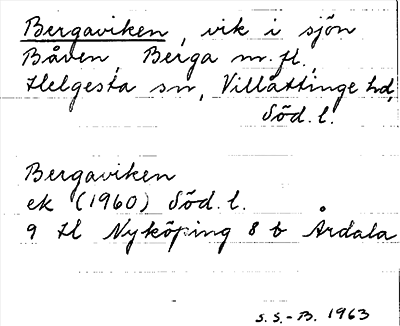 Bergaviken, vik i sjön
Båven, Berga m. fl.,
Helgesta sn, Villåttinge hd,
Söd. l.
Bergaviken
ek (1960) Söd. l.
9 H Nyköping 8 b Årdala
S. S.-B. 1963